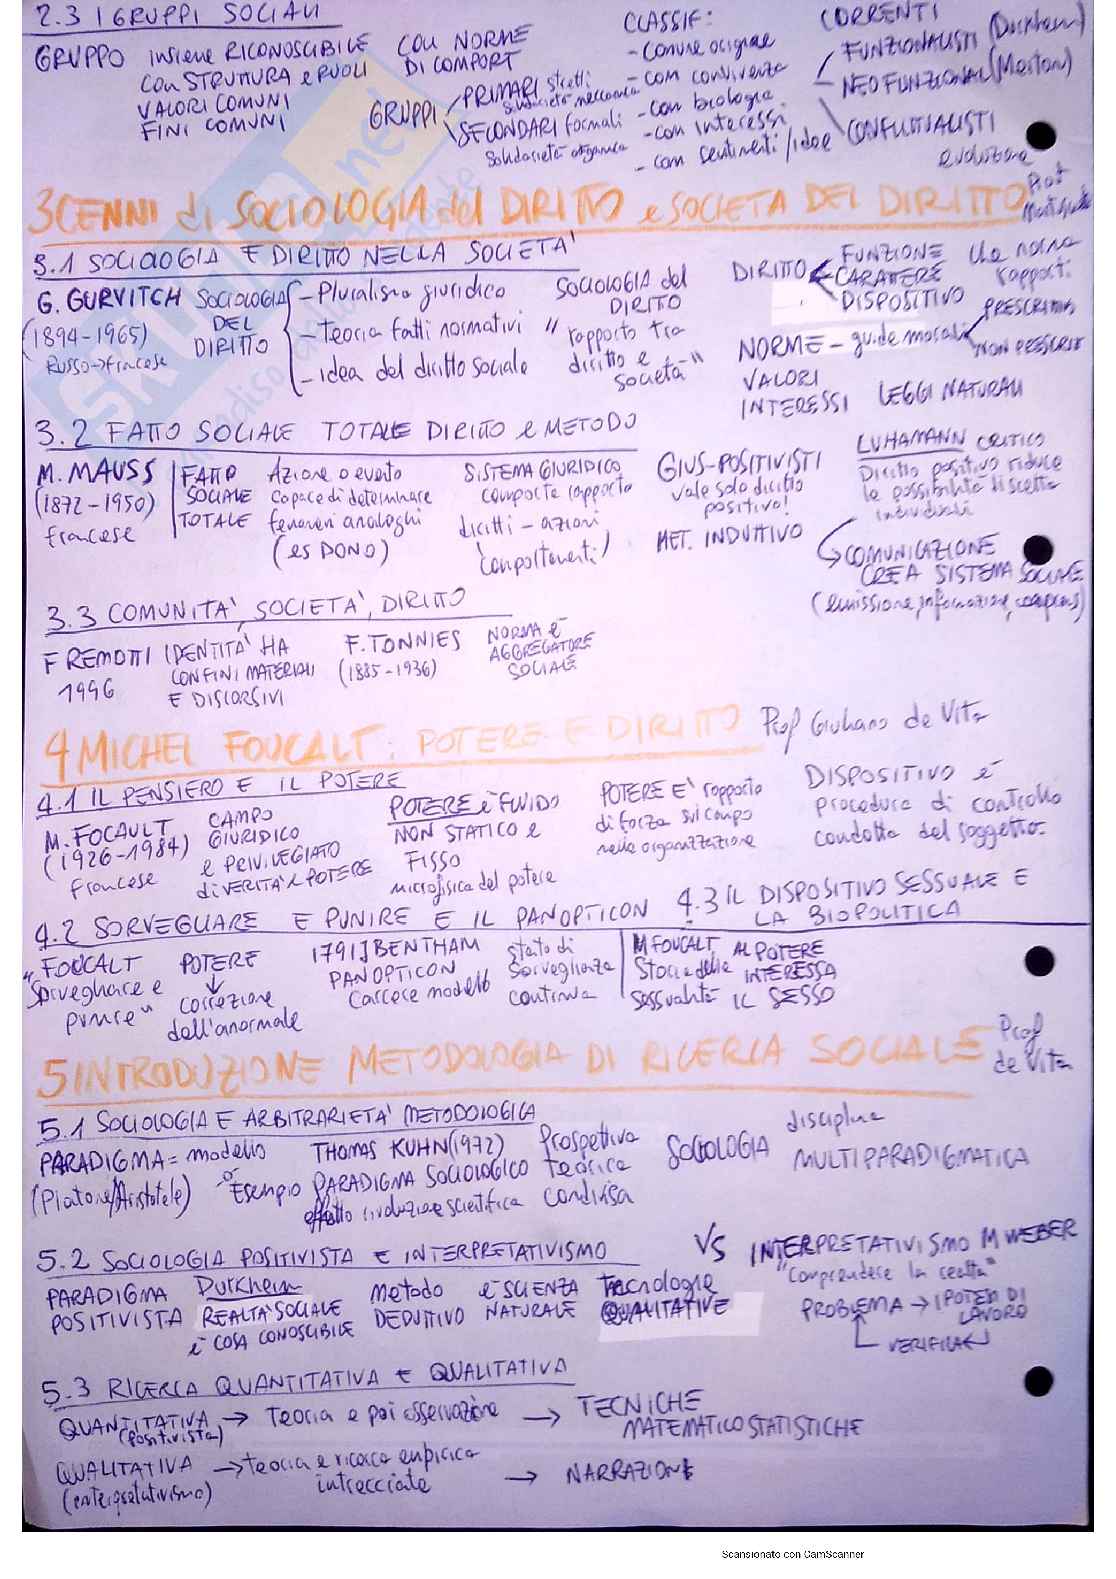 2.3 I GRUPPI SOCIALI
GRUPPO insieme RICONOSCIBILE CON NORME
CON STRUTTURA e RUOLI DI COMPORT
VALORI COMUNI
FINI COMUNI
GRUPPI
PRIMARI stretti
solidarietà meccanica
SECONDARI formali
solidarietà organica
CLASSIF:
- comune origine
- com convivenza
- com biologia
- com interessi
- com sentimenti/idee
CORRENTI
FUNZIONALISTI (Durkheim)
NEOFUNZIONAL (Merton)
CONFLITTUALISTI
evoluzione
3 CENNI di SOCIOLOGIA del DIRITTO e SOCIETA DEL DIRITTO
Prof
3.1 SOCIOLOGIA E DIRITTO NELLA SOCIETA'
G. GURVITCH
(1894-1965)
Russo->francese
SOCIOLOGIA
DEL
DIRITTO
- Pluralismo giuridico
- Teoria fatti normativi
- idea del diritto sociale
SOCIOLOGIA del
DIRITTO
" rapporto tra
diritto e
società "
DIRITTO
FUNZIONE che norma
CARATTERE rapporti
DISPOSITIVO
NORME - guide morali
PRESCRITTIVE
NON PRESCRIT
VALORI
INTERESSI LEGGI NATURALI
3.2 FATTO SOCIALE TOTALE DIRITTO e METODO
M. MAUSS
(1872-1950)
francese
FATTO
SOCIALE
TOTALE
Azione o evento
capace di determinare
fenomeni analoghi
(es DONO)
SISTEMA GIURIDICO
comporta rapporto
diritti - azioni
(comportamenti)
GIUS-POSITIVISTI
vale solo diritto
positivo!
MET. INDUTTIVO
LUHAMANN CRITICO
Diritto positivo riduce
le possibilità di scelta
individuali
COMUNICAZIONE
CREA SISTEMA SOCIALE
(emissione, informazione, compens)
3.3 COMUNITA', SOCIETA', DIRITTO
F REMOTTI
1996
IDENTITA' HA
CONFINI MATERIALI
E DISCORSIVI
F. TONNIES
(1885-1936)
NORMA è
AGGREGATORE
SOCIALE
4 MICHEL FOUCALT: POTERE E DIRITTO Prof Giuliano de Vita
4.1 IL PENSIERO E IL POTERE
M. FOCAULT
(1926-1984)
francese
CAMPO
GIURIDICO
e PRIVILEGIATO
di VERITA' e POTERE
POTERE è FLUIDO
NON STATICO e
FISSO
microfisica del potere
POTERE E' rapporto
di forza sul campo
nella organizzazione
DISPOSITIVO è
procedura di controllo
condotta del soggetto.
4.2 SORVEGLIARE E PUNIRE E IL PANOPTICON
"FOUCALT
Sorvegliare e
punire"
POTERE
↓
correzione
dell'anormale
1791 J BENTHAM
PANOPTICON
Carcere modello
stato di
sorveglianza
continua
4.3 IL DISPOSITIVO SESSUALE E
LA BIOPOLITICA
M FOUCALT
Storia della
sessualità
AL POTERE
INTERESSA
IL SESSO
5 INTRODUZIONE METODOLOGIA DI RICERCA SOCIALE
Prof
de Vita
5.1 SOCIOLOGIA E ARBITRARIETA' METODOLOGICA
PARADIGMA = modello
o Esempio
(Platone/Aristotele)
THOMAS KUHN (1972)
PARADIGMA SOCIOLOGICO
effetto rivoluzione scientifica
Prospettiva
teorica
condivisa
SOCIOLOGIA disciplina
MULTIPARADIGMATICA
5.2 SOCIOLOGIA POSITIVISTA E INTERPRETATIVISMO
PARADIGMA
POSITIVISTA
Durkheim
REALTA' SOCIALE
è COSA CONOSCIBILE
metodo
DEDUTTIVO
è SCIENZA
NATURALE
Tecnologie
QUALITATIVE
VS INTERPRETATIVISMO M WEBER
"Comprendere la realtà"
PROBLEMA → IPOTESI DI
LAVORO
VERIFICA
5.3 RICERCA QUANTITATIVA E QUALITATIVA
QUANTITATIVA → Teoria e poi osservazione → TECNICHE
(positivista) MATEMATICO STATISTICHE
QUALITATIVA → teoria e ricerca empirica → NARRAZIONE
(interpretativismo) intrecciate
Scansionato con CamScanner